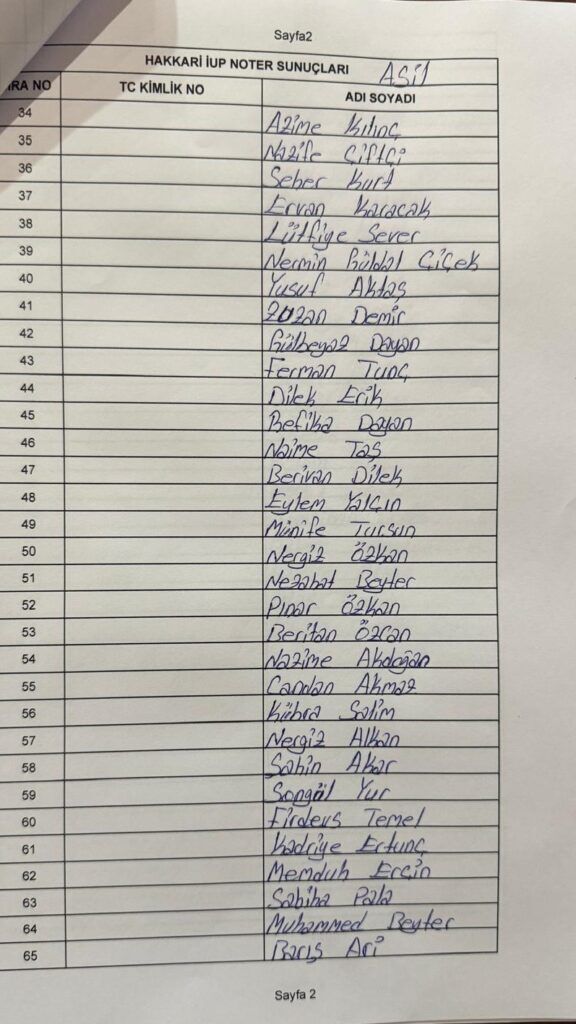 Sayfa2
HAKKARİ İUP NOTER SUNUÇLARI ASİL
IRA NO TC KİMLİK NO ADI SOYADI
34 Azime Kılınç
35 Nazife Çiftçi
36 Seher Kurt
37 Ervan Karacak
38 Lütfiye Sever
39 Nermin Güldal Çiçek
40 Yusuf Aktaş
41 Zozan Demir
42 Gülbeyaz Dayan
43 Ferman Tunç
44 Dilek Erik
45 Refika Dayan
46 Naime Taş
47 Berivan Dilek
48 Eylem Yalçın
49 Münife Tursun
50 Nergiz Özkan
51 Nezahat Beyter
52 Pınar Özkan
53 Beritan Özcan
54 Nazime Akdoğan
55 Candan Akmaz
56 Kübra Salim
57 Nergiz Alkan
58 Şahin Akar
59 Songül Yur
60 Firdevs Temel
61 Kadriye Ertunç
62 Memduh Erçin
63 Sabiha Pala
64 Muhammed Beyter
65 Barış Ari
Sayfa 2